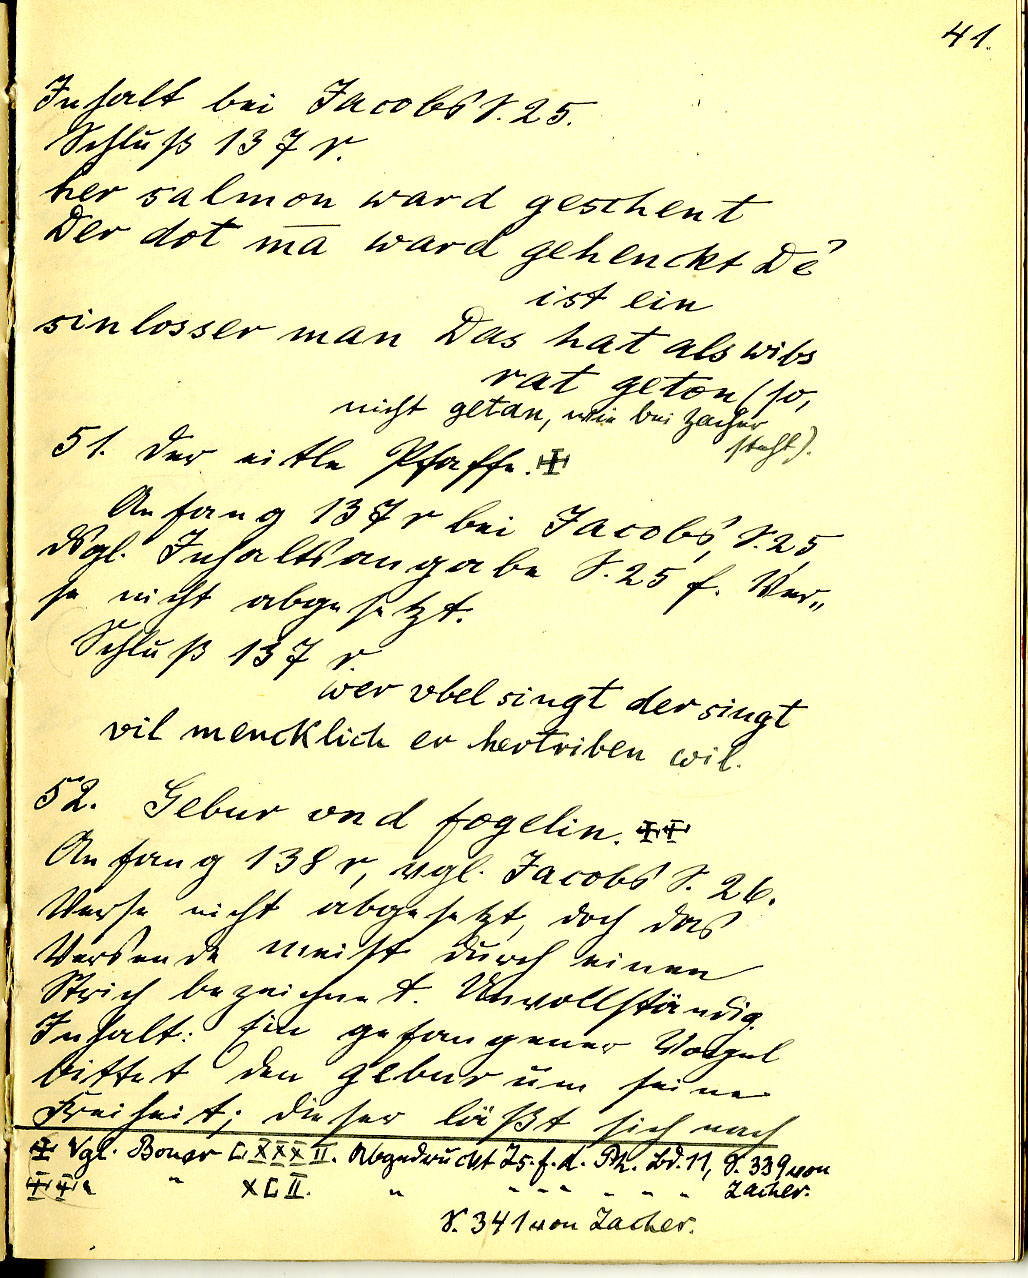 41.
Inhalt bei Jacobs S. 25.
Schluß 137 r.
her salmon ward geschent
Der dot mā ward gehenckt Dē
ist ein
sinlosser man Das hat als wibs
rat geton (so,
nicht getan, wie bei Zacher
steht).
51. Der eitle Pfaffe. ‡
Anfang 137 r bei Jacobs, S. 25
Vgl. Inhaltsangabe S. 25 f. Ver„
se nicht abgesetzt.
Schluß 137 r.
wer vbel singt der singt
vil mencklich er hertriben wil.
52. Gebur vnd fogelin. ‡‡
Anfang 138 r, vgl. Jacobs S. 26.
Verse nicht abgesetzt, doch das
Versende meist durch einen
Strich bezeichnet. Unvollständig.
Inhalt: Ein gefangener Vogel
bittet den gebur um seine
Freiheit; dieser läßt sich nach
‡ Vgl. Boner LXXXII. Abgedruckt Zs. f. d. Ph. Bd. 11, S. 339 von
Zacher.
‡‡ " " XCII. " " " " " " "
S. 341 von Zacher.